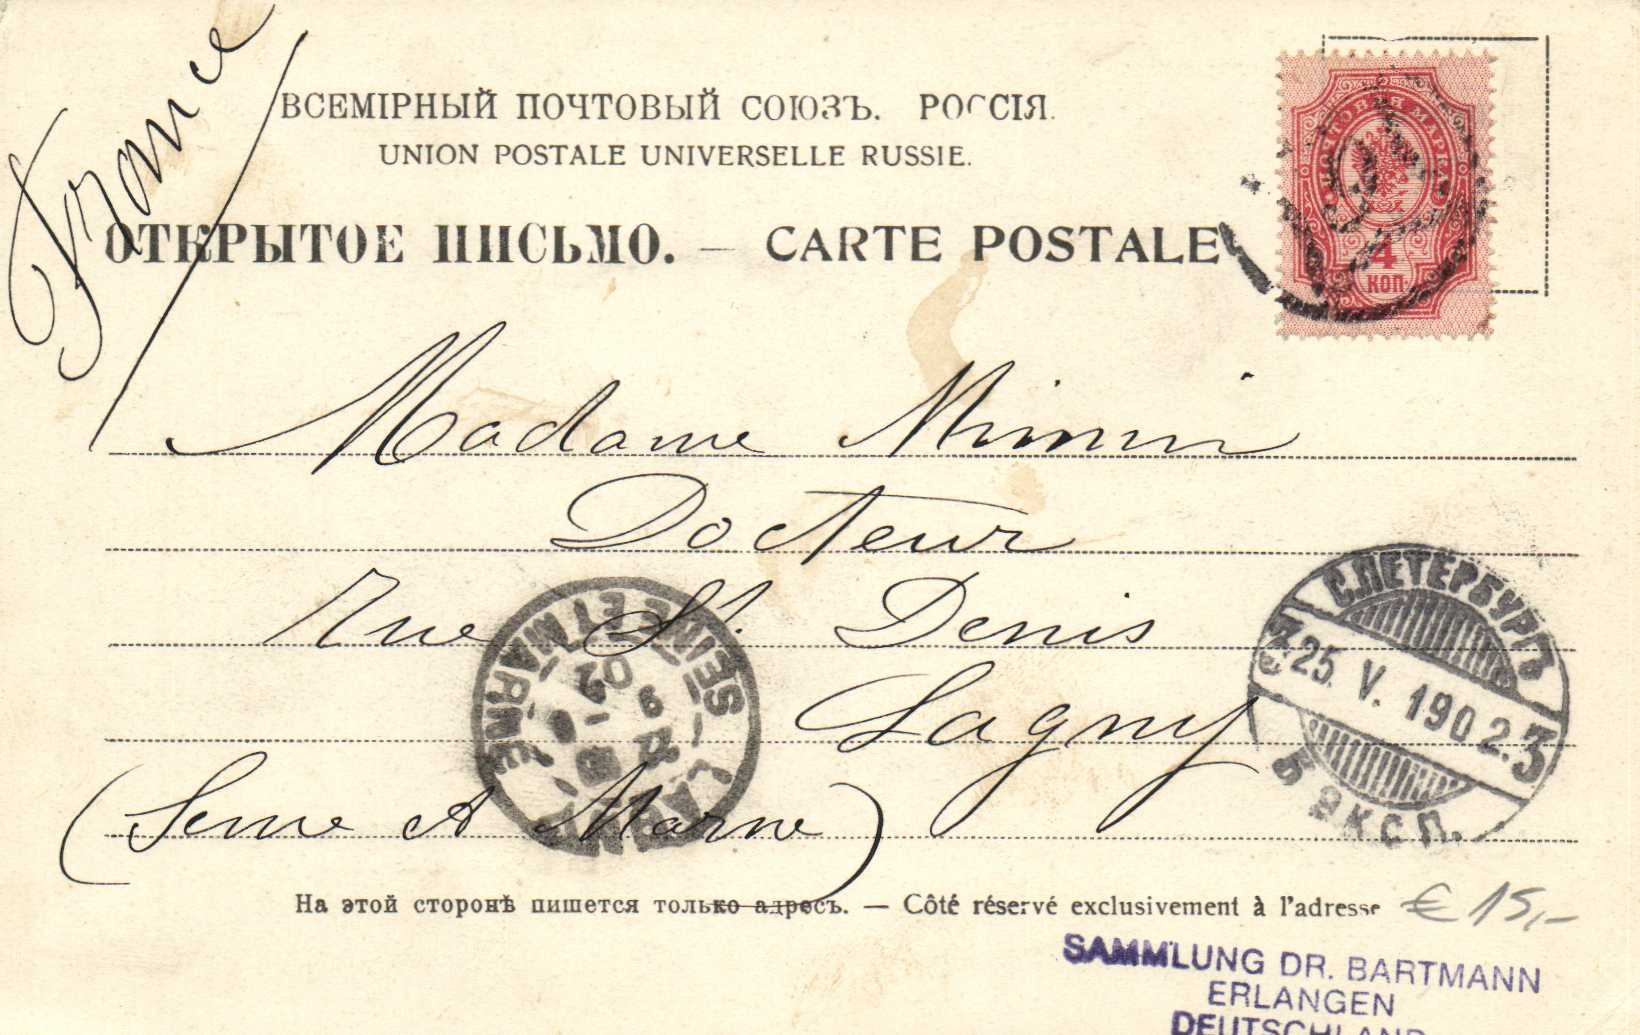 France
ВСЕМІРНЫЙ ПОЧТОВЫЙ СОЮЗЪ. РОССІЯ.
UNION POSTALE UNIVERSELLE RUSSIE.
ОТКРЫТОЕ ПИСЬМО. — CARTE POSTALE
ПОЧТОВАЯ МАРКА
4
КОП.
Madame
Docteur
rue St. Denis
Lagny
(Seine et Marne)
SEINE ET MARNE
02
С.ПЕТЕРБУРГЪ
25. V. 1902. 3
5 ЭКСП.
На этой сторонѣ пишется только адресъ. — Côté réservé exclusivement à l'adresse
€ 15,-
SAMMLUNG DR. BARTMANN
ERLANGEN
DEUTSCHLAND